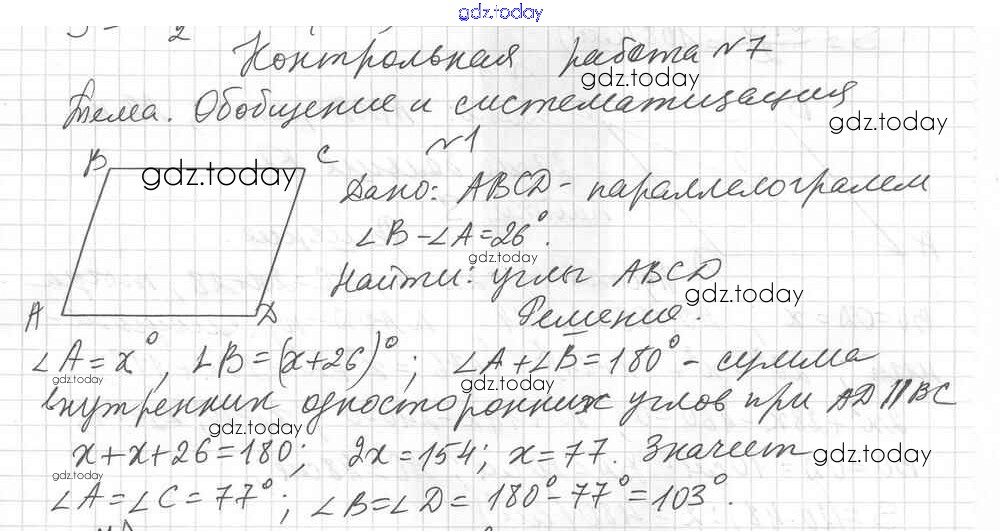 gdz.today
Контрольная работа №7
gdz.today
Тема. Обобщение и систематизация
gdz.today
№1
B C
gdz.today
Дано: ABCD - параллелограмм
∠B - ∠A = 26°.
gdz.today
Найти: углы ABCD
gdz.today
A D
Решение.
∠A = x°, ∠B = (x+26)°; ∠A + ∠B = 180° - сумма
gdz.today
внутренних односторонних углов при AD || BC
gdz.today
x + x + 26 = 180; 2x = 154; x = 77. Значит
gdz.today
gdz.today
∠A = ∠C = 77°; ∠B = ∠D = 180° - 77° = 103°.